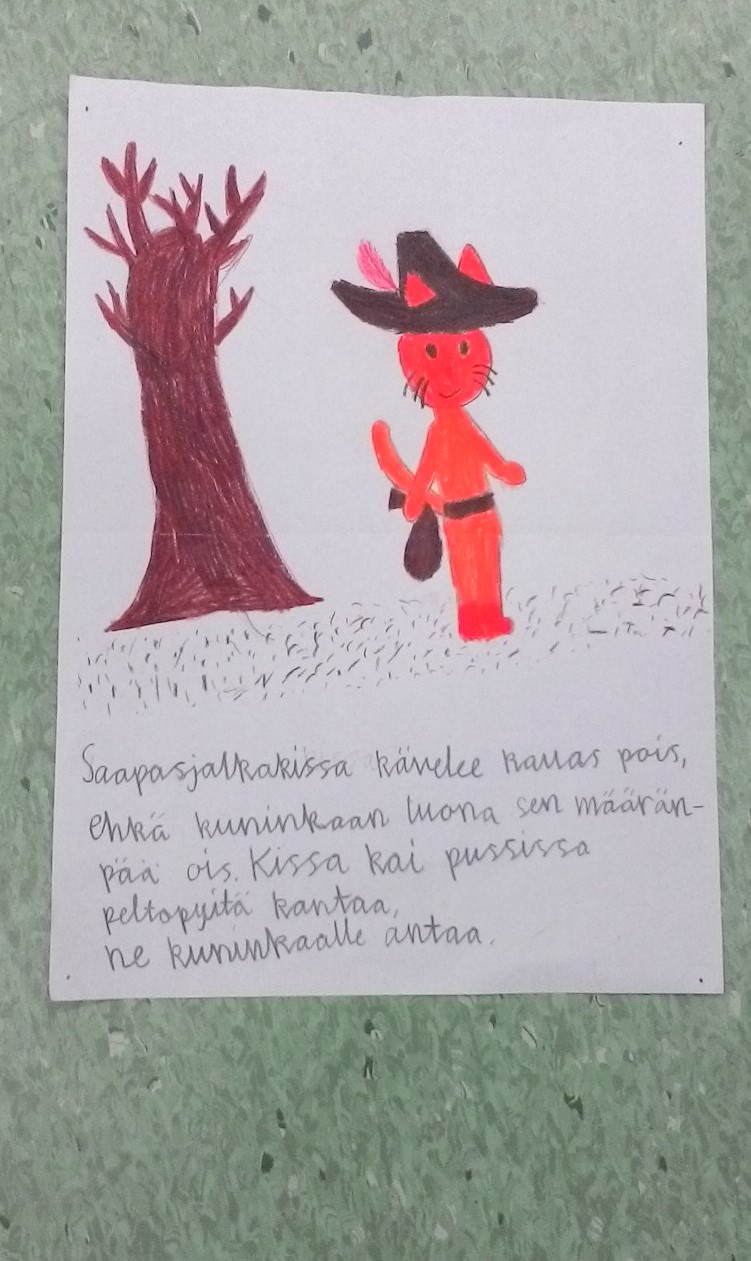 Saapasjalkakissa kävelee kauas pois,
ehkä kuninkaan luona sen määrän-
pää ois. Kissa kai pussissa
peltopyitä kantaa,
ne kuninkaalle antaa.